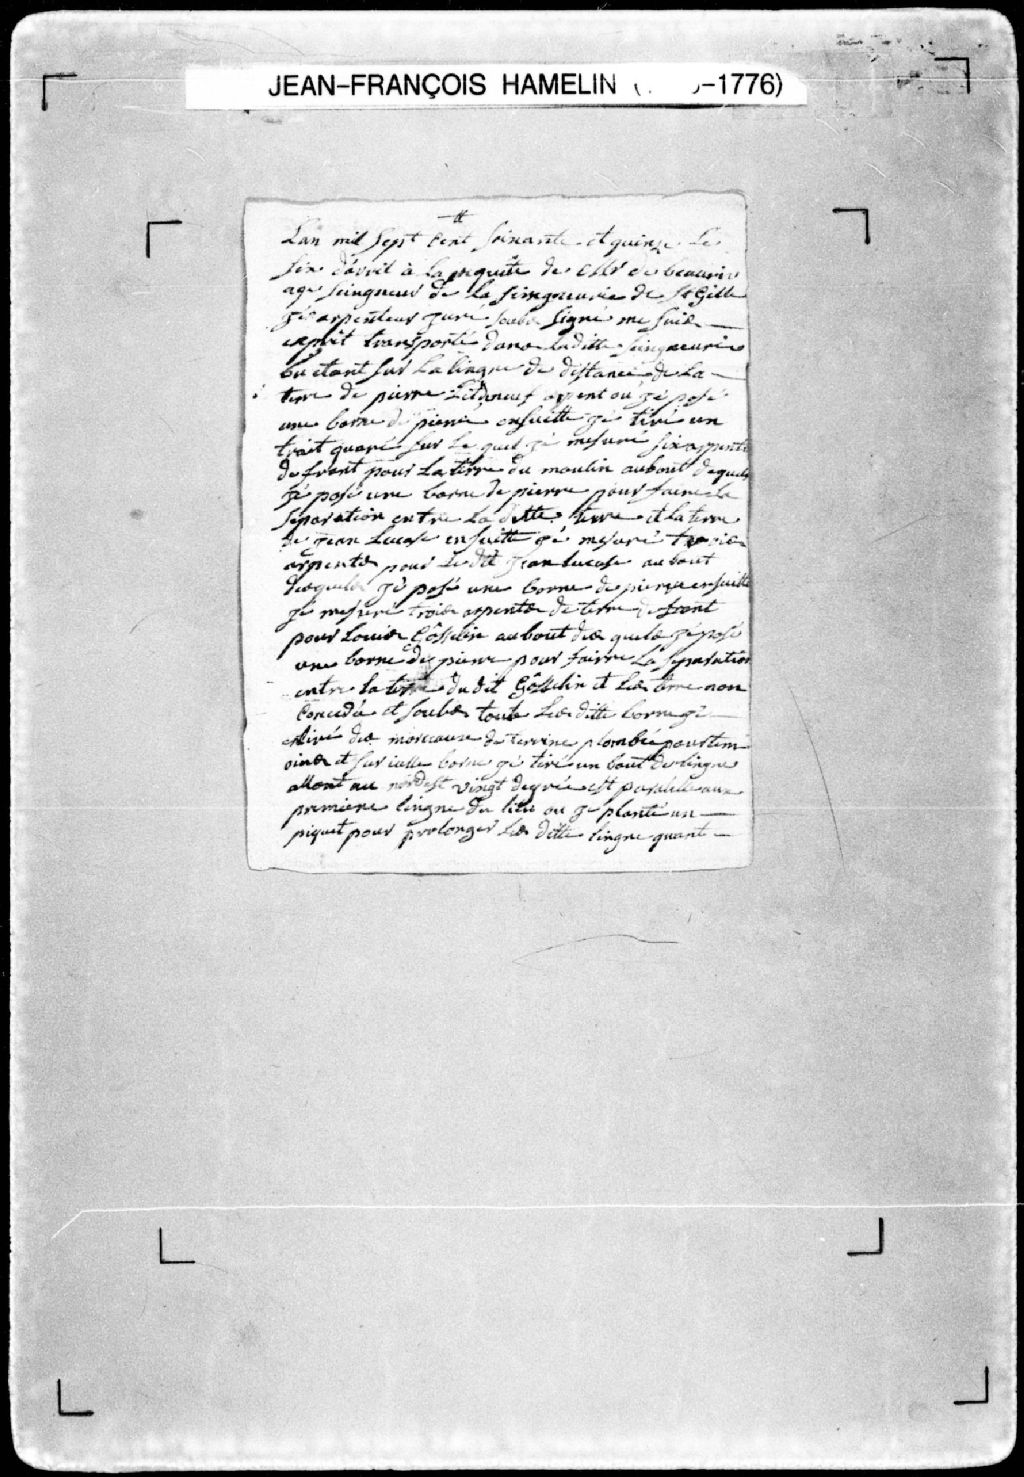 JEAN-FRANÇOIS HAMELIN ( -1776)
Lan mil sept cent soixante et quinze le
six davril à la requête de Mr de beauriv
age seingneur de la seingneurie de St Gille
gé arpenteur juré soubs signé me suis
exprit transporté dans laditte seingneurie
ou étant sur la lingne de distance de la
terre de pierre arpent ou gé posé
une borne de pierre ensuitte gé tiré un
trait quaré sur le quel gé mesuré six arpents
de front pour la terre du moulin au bout desquels
gé posé une borne de pierre pour faire la
separation entre la ditte terre et la terre
de jean Lucase ensuitte gé mesuré trois
arpents pour le dit jean lucase au bout
desquels gé posé une borne de pierre ensuitte
gé mesuré trois arpents de terre de front
pour Louis Gôsselin au bout des quels gé posé
une borne de pierre pour fairre la separation
entre la terre du dit Gôsselin et les terre non
concedé et soubs toute les ditte borne gé
mivé des morceaux de terrine plombé pour tem
oins et sur icelle borne gé tiré un bout de lingne
allant au nordest vingt degrée est paralelle aux
premiere lingne du lieu ou gé planté un
piquet pour prolonger les ditte lingne quant